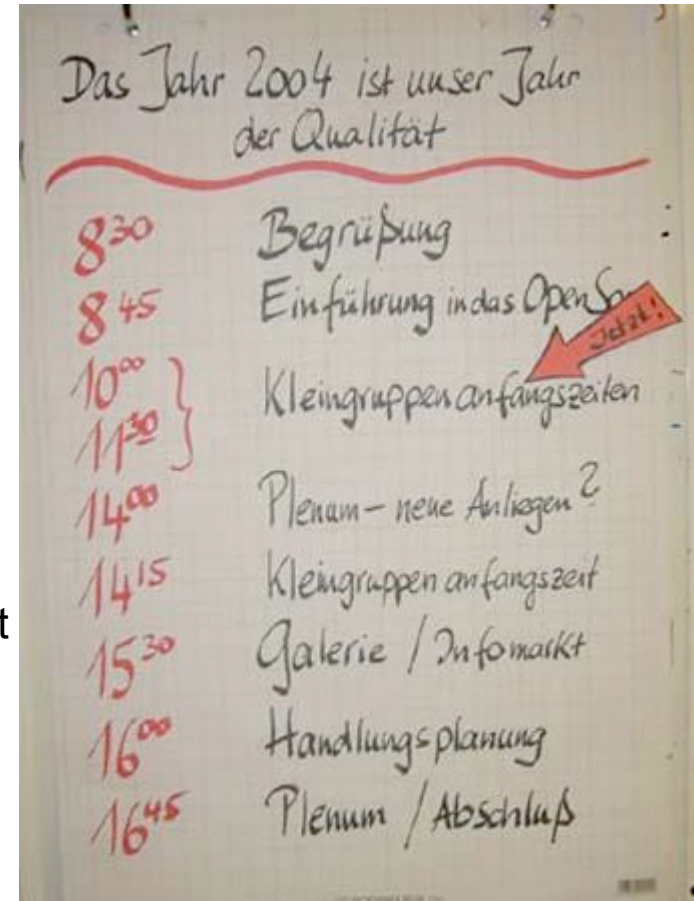 Das Jahr 2004 ist unser Jahr
der Qualität
8 30 Begrüßung
8 45 Einführung in das Open
Jetzt!
10 00 Kleingruppenanfangszeiten
11 30
14 00 Plenum – neue Anliegen?
14 15 Kleingruppenanfangszeit
t
15 30 Galerie / Infomarkt
16 00 Handlungsplanung
16 45 Plenum / Abschluß